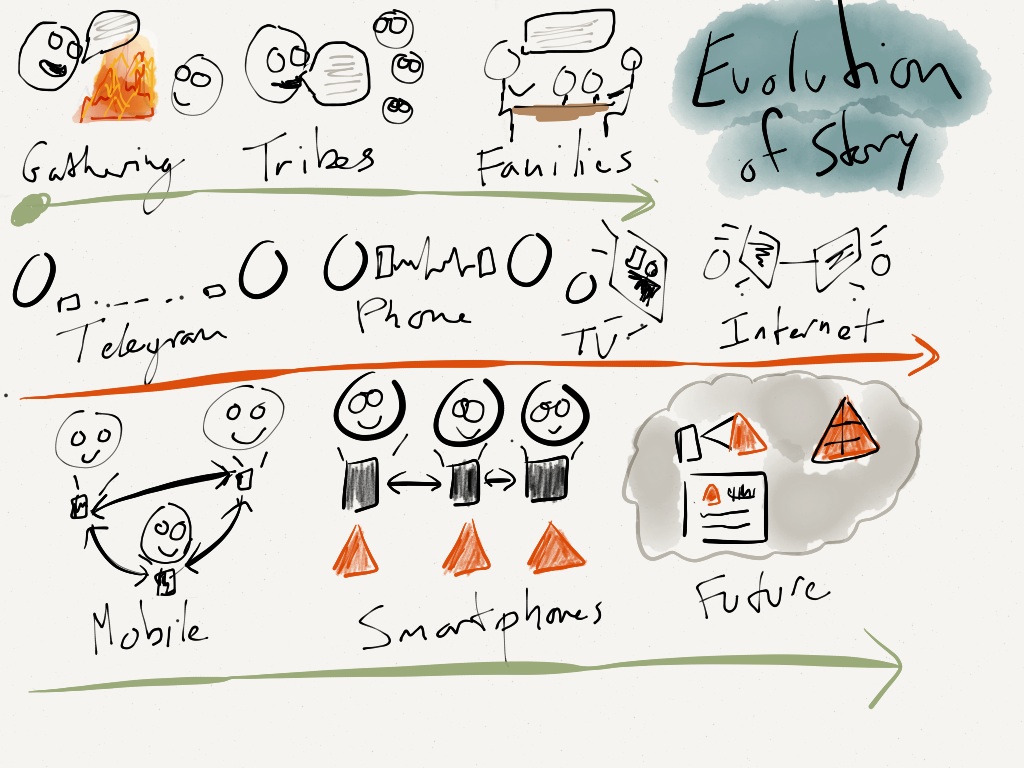 Evolution
of Story
Gathering
Tribes
Families
Telegram
Phone
TV
Internet
Mobile
Smartphones
Future